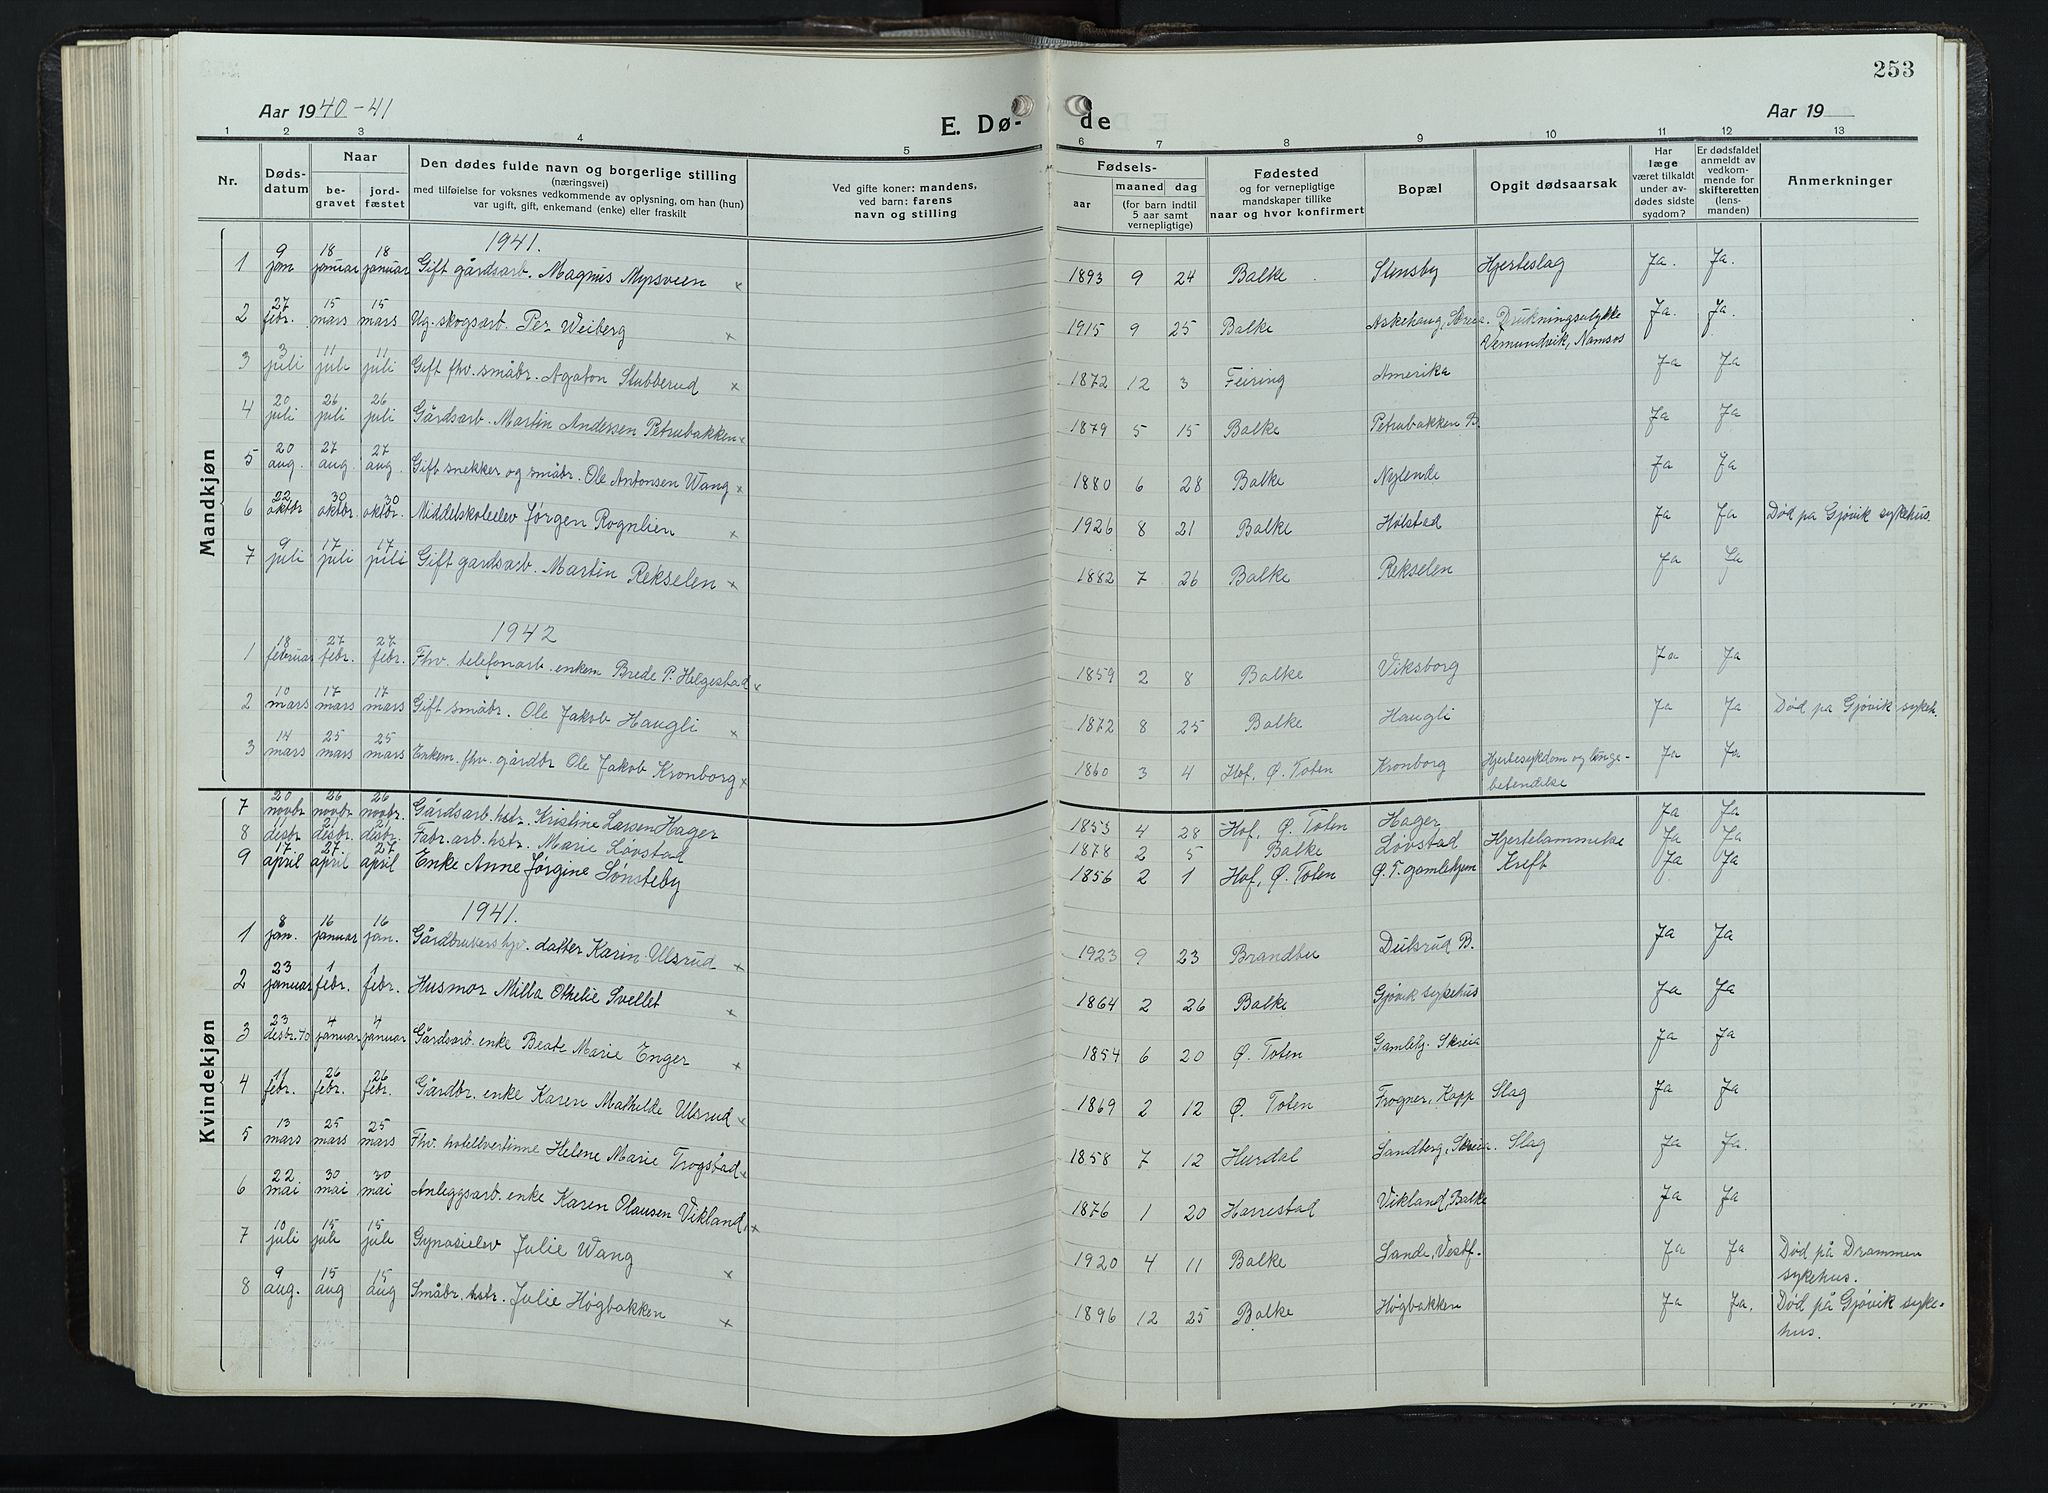 253
Aar 1940-41
E. Dø-
de
Aar 19
1 2 3 4 5 6 7 8 9 10 11 12 13
Nr.
Døds-
datum
Naar
be-
gravet
jord-
fæstet
Den dødes fulde navn og borgerlige stilling
(næringsvei)
med tilføielse for voksnes vedkommende av oplysning, om han (hun)
var ugift, gift, enkemand (enke) eller fraskilt
Ved gifte koner: mandens,
ved barn: farens
navn og stilling
Fødsels-
aar
maaned dag
(for barn indtil
5 aar samt
vernepligtige)
Fødested
og for vernepligtige
mandskaper tillike
naar og hvor konfirmert
Bopæl
Opgit dødsaarsak
Har
læge
været tilkaldt
under av-
dødes sidste
sygdom?
Er dødsfaldet
anmeldt av
vedkom-
mende for
skifteretten
(lens-
manden)
Anmerkninger
Mandkjøn
1941.
1 9 jan 18 januar 18 januar Gift gårdsarb. Magnus Myrsveen x 1893 9 24 Balke Stensby Hjerteslag Ja. Ja.
2 27 febr. 15 mars 15 mars Ug. skogsarb. Per Weiberg x 1915 9 25 Balke Askehaug, Skreia. Drukningsulykke Ja. Ja.
Vemundvik, Namsos
3 3 juli 11 juli 11 juli Gift fhv. småbr. Agaton Stubberud x 1872 12 3 Feiring Amerika Ja Ja
4 20 juli 26 juli 26 juli Gårdsarb. Martin Andersen Petrubakken x 1879 5 15 Balke Petrubakken B. Ja Ja
5 20 aug. 27 aug. 27 aug. Gift snekker og småbr. Ole Antonsen Wang x 1880 6 28 Balke Nylende Ja Ja
6 22 oktbr 30 oktbr. 30 oktbr. Middelskoleelev Jørgen Rognlien x 1926 8 21 Balke Holstad Ja Ja Død pa Gjøvik sykehus.
7 9 juli 17 juli 17 juli Gift gardsarb. Martin Rekselen x 1882 7 26 Balke Rekselen Ja Ja
1942
1 18 februar 27 febr. 27 febr. Fhv. telefonarb. enkem Brede P. Helgestad x 1859 2 8 Balke Viksborg Ja Ja
2 10 mars 17 mars 17 mars Gift småbr. Ole Jakob Haugli x 1872 8 25 Balke Haugli Ja Ja Død pa Gjøvik sykeh.
3 14 mars 25 mars 25 mars Enkem. fhv. gårdbr Ole Jakob Kronborg x 1860 3 4 Hof, Ø. Toten Kronborg Hjertesykdom og lunge- Ja Ja
betendelse
Kvindekjøn
7 20 novbr 26 novbr 26 novbr. Gårdsarb. hstr. Kristine Larsen Hager 1853 4 28 Hof, Ø. Toten Hager Ja Ja
8 11 desbr 21 desbr. 21 desbr. Fabr. arb. hstr. Marie Løvstad 1878 2 5 Balke Løvstad Hjertelammelse Ja Ja
9 17 april 27 april 27 april Enke Anne Jørgine Sønsteby 1856 2 1 Hof, Ø. Toten Ø. T. gamlehjem Kreft Ja Ja
1941.
1 8 jan. 16 januar 16 jan. Gårdbrukers hjv. datter Karin Ulsrud x 1923 9 23 Brandbu Dulsrud B. Ja Ja
2 23 januar 1 febr. 1 febr. Husmor Milla Othelie Svellet x 1864 2 26 Balke Gjøvik sykehus Ja Ja
3 23 desbr. 40 4 januar 4 januar Gårdsarb. enke Beate Marie Enger x 1854 6 20 Ø. Toten Gamlehj. Skreia Ja Ja
4 11 febr. 26 febr. 26 febr. Gårdbr. enke Karen Mathilde Ulsrud x 1869 2 12 Ø. Toten Frogner, Kapp Slag Ja Ja
5 13 mars 25 mars 25 mars Fhv. hotellvertinne Helene Marie Trogstad x 1858 7 12 Hurdal Sandberg, Skreia. Slag Ja Ja.
6 22 mai 30 mai 30 mai Anleggsarb. enke Karen Olausen Vikland x 1876 1 20 Harrestad Vikland, Balke Ja Ja
7 10 juli 15 juli 15 juli Gynasielev Julie Wang x 1920 4 11 Balke Sande, Vestf. Ja Ja Død på Drammen
sykehus.
8 9 aug. 15 aug 15 aug Småbr. hstr. Julie Høgbakken x 1896 12 25 Balke Høgbakken Ja Ja. Død på Gjøvik syke-
hus.